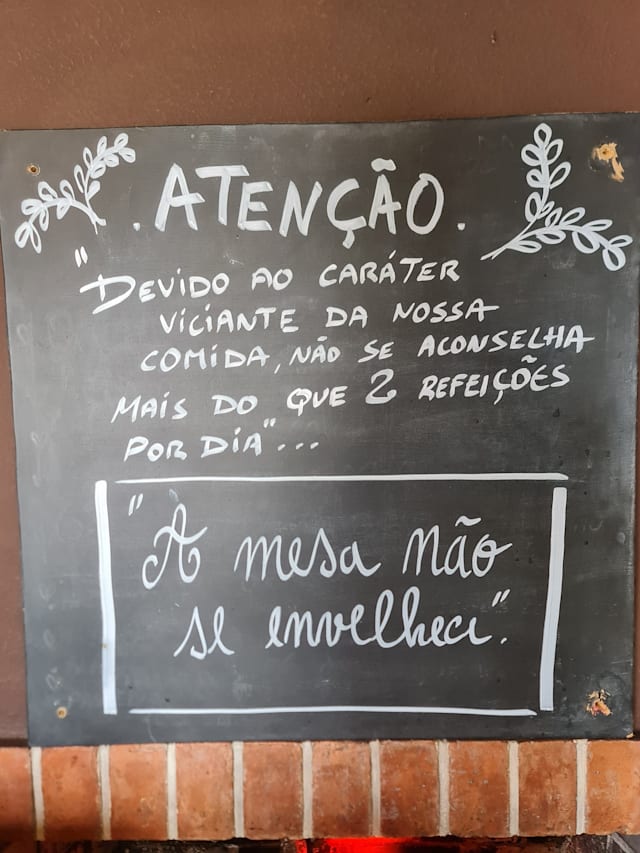 . ATENÇÃO.
"DEVIDO AO CARÁTER
VICIANTE DA NOSSA
COMIDA, NÃO SE ACONSELHA
MAIS DO QUE 2 REFEIÇÕES
POR DIA"...
"À mesa não
se envelhece".